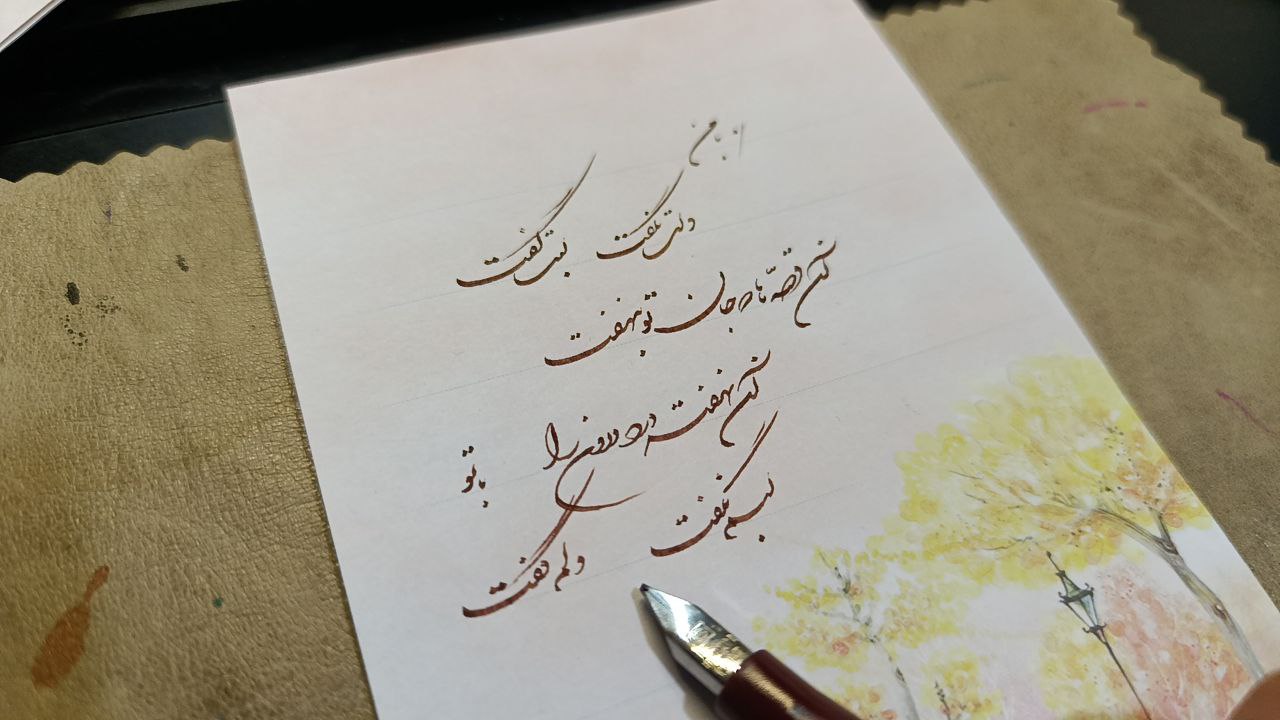 با من
دلت نگفت لبت گفت
آن قصّه‌ها که جان تو بنهفت
آن نهفته درد درون را با تو
لبم نگفت دلم گفت